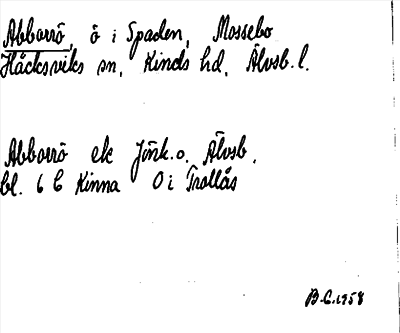 Abborrö, ö i Spaden, Mossebo
Håcksviks sn, Kinds hd, Älvsb. l.
Abborrö ek Jönk. o. Älvsb.
bl. 6 C Kinna O i Trollås
B.C. 1958